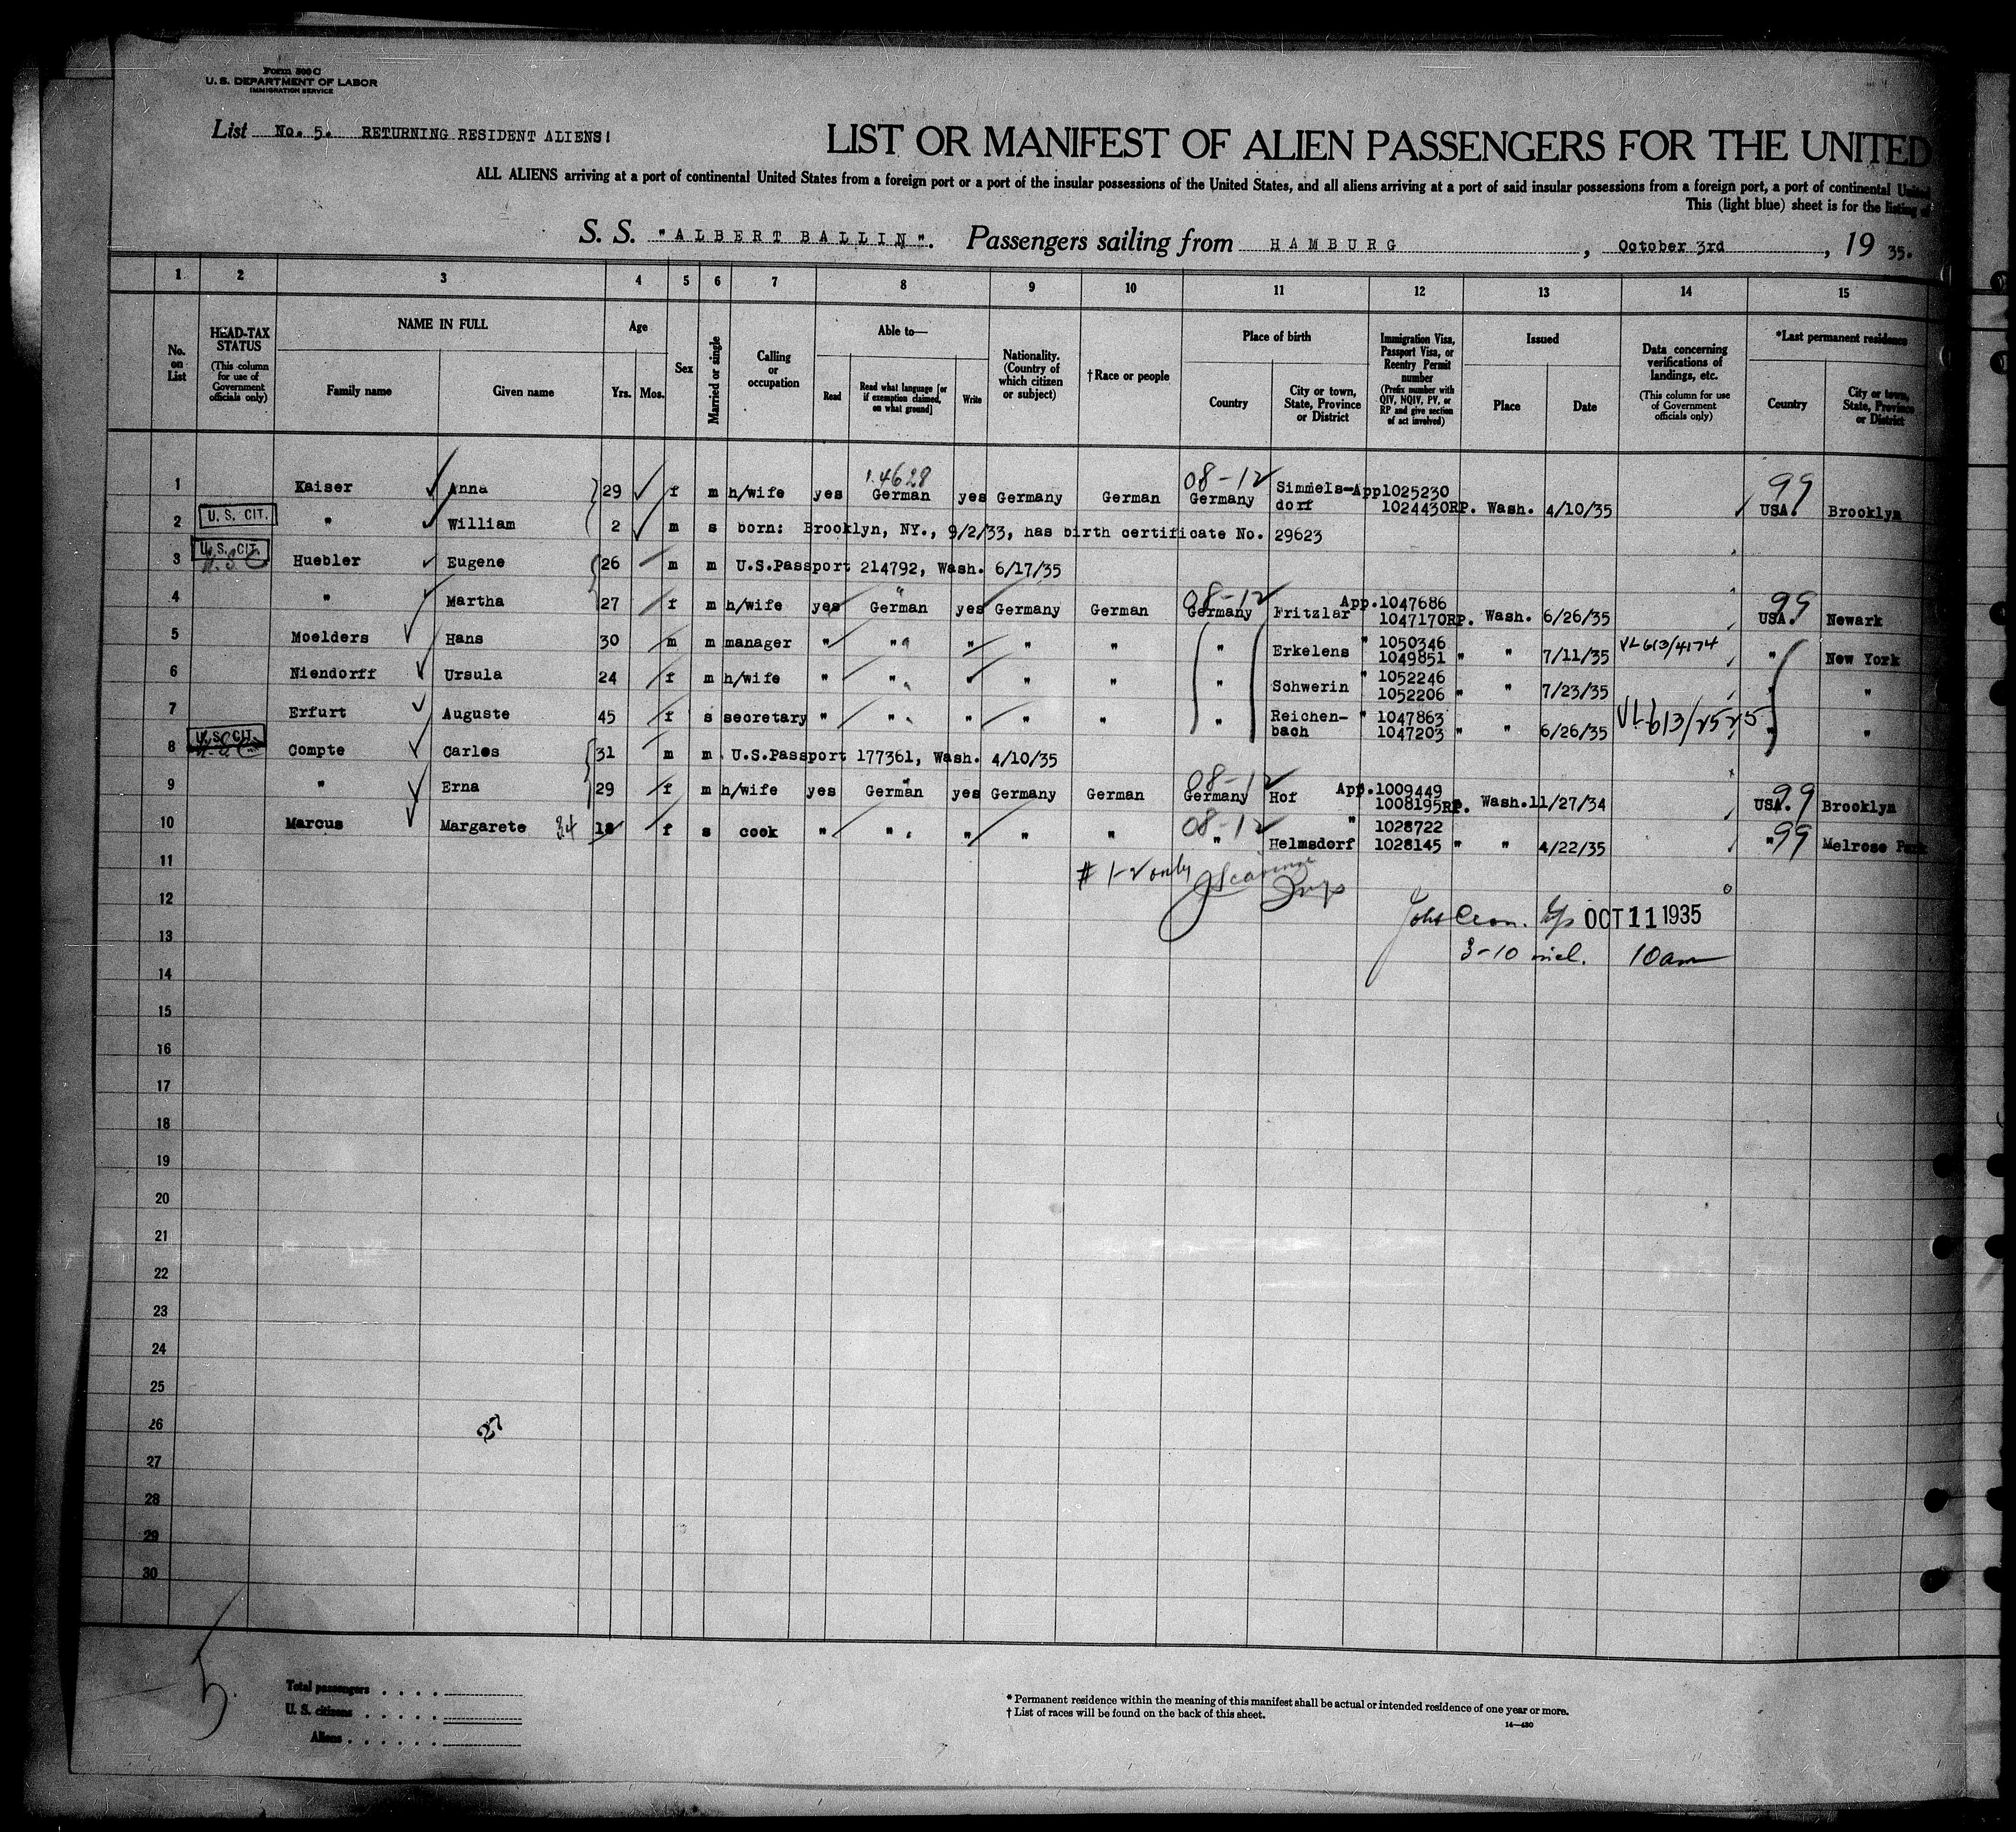 Form 500 C
U. S. DEPARTMENT OF LABOR
IMMIGRATION SERVICE
List No. 5. RETURNING RESIDENT ALIENS!
LIST OR MANIFEST OF ALIEN PASSENGERS FOR THE UNITED
ALL ALIENS arriving at a port of continental United States from a foreign port or a port of the insular possessions of the United States, and all aliens arriving at a port of said insular possessions from a foreign port, a port of continental United
This (light blue) sheet is for the listing of
S. S. "ALBERT BALLIN". Passengers sailing from HAMBURG, October 3rd, 19 35.
1 2 3 4 5 6 7 8 9 10 11 12 13 14 15
No. on List
HEAD-TAX STATUS
(This column for use of Government officials only)
NAME IN FULL
Family name Given name
Age
Yrs. Mos.
Sex
Married or single
Calling or occupation
Able to—
Read
Read what language [or if exemption claimed, on what ground]
Write
Nationality. (Country of which citizen or subject)
†Race or people
Place of birth
Country
City or town, State, Province or District
Immigration Visa, Passport Visa, or Reentry Permit number
(Prefix number with QIV, NQIV, PV, or RP and give section of act involved)
Issued
Place Date
Data concerning verifications of landings, etc.
(This column for use of Government officials only)
*Last permanent residence
Country
City or town, State, Province or District
1.4628 08-12 99
1 Kaiser Anna 29 f m h/wife yes German yes Germany German Germany Simmels-dorf App1025230 1024430RP. Wash. 4/10/35 USA. Brooklyn
2 U. S. CIT. " William 2 m s born: Brooklyn, NY., 9/2/33, has birth certificate No. 29623
3 U. S. CIT. Huebler Eugene 26 m m U.S.Passport 214792, Wash. 6/17/35
08-12 99
4 " Martha 27 f m h/wife yes German yes Germany German Germany Fritzlar App.1047686 1047170RP. Wash. 6/26/35 USA. Newark
5 Moelders Hans 30 m m manager " " " " " " Erkelens " 1050346 1049851 " " 7/11/35 VL 613/4174 " New York
6 Niendorff Ursula 24 f m h/wife " " " " " " Schwerin " 1052246 1052206 " " 7/23/35 " "
7 Erfurt Auguste 45 f s secretary " " " " " " Reichen-bach " 1047863 1047203 " " 6/26/35 VL-613/2525 " "
8 U. S. CIT. Compte Carlos 31 m m U.S.Passport 177361, Wash. 4/10/35
08-12 99
9 " Erna 29 f m h/wife yes German yes Germany German Germany Hof App.1009449 1008195RP. Wash. 11/27/34 USA. Brooklyn
08-12 99
10 Marcus Margarete 34 18 f s cook " " " " " " Helmsdorf " 1028722 1028145 " " 4/22/35 " Melrose Park
11
# 1-2 only
12
OCT 11 1935
13
3-10 incl. 10am
14
15
16
17
18
19
20
21
22
23
24
25
26
27
27
28
29
30
5
Total passengers . . . .
U. S. citizens . . . . .
Aliens . . . . . .
* Permanent residence within the meaning of this manifest shall be actual or intended residence of one year or more.
† List of races will be found on the back of this sheet.
14—430